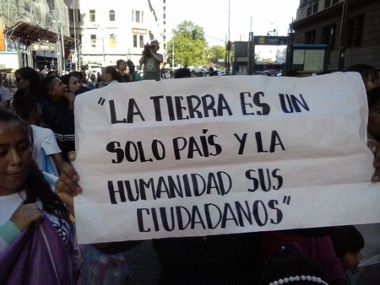 "LA TIERRA ES UN
SOLO PAÍS Y LA
HUMANIDAD SUS
CIUDADANOS"